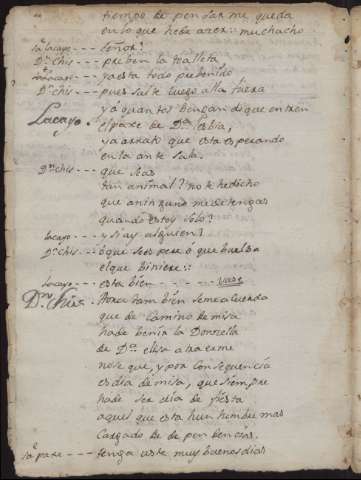 tiempo de pensar me queda
en lo que hebe azer: muchacho
sale lacayo --- señor?
Dn chis --- preben la toalleta
lacayo --- ya esta todo prebenido
Dn chis --- pues salte luego alla fuera
y á quantos bengan di que entren
Lacayo. el paxe de Da Lesbia,
ya arrato que esta esperando
en la ante sala.
Dn chis --- que seas
tan animal? no te hedicho
que aninguno me detengas
quando estoy solo?
lacayo --- y si ay alguien?
Dn chis --- ó que se espere ó que buelba
el que biniere:
lacayo --- esta bien ------ vase
Dn Chis. Aora tambien seme acuerda
que de camino de misa
hade benir la Donzella
de Da elisa atraerme
nose que, y por consequencia
es dia de misa, que siempre
hade ser dia de fiesta
aquel que esta hun hombre mas
Cargado de dependencias.
sa paxe --- tenga uste muy buenos dias